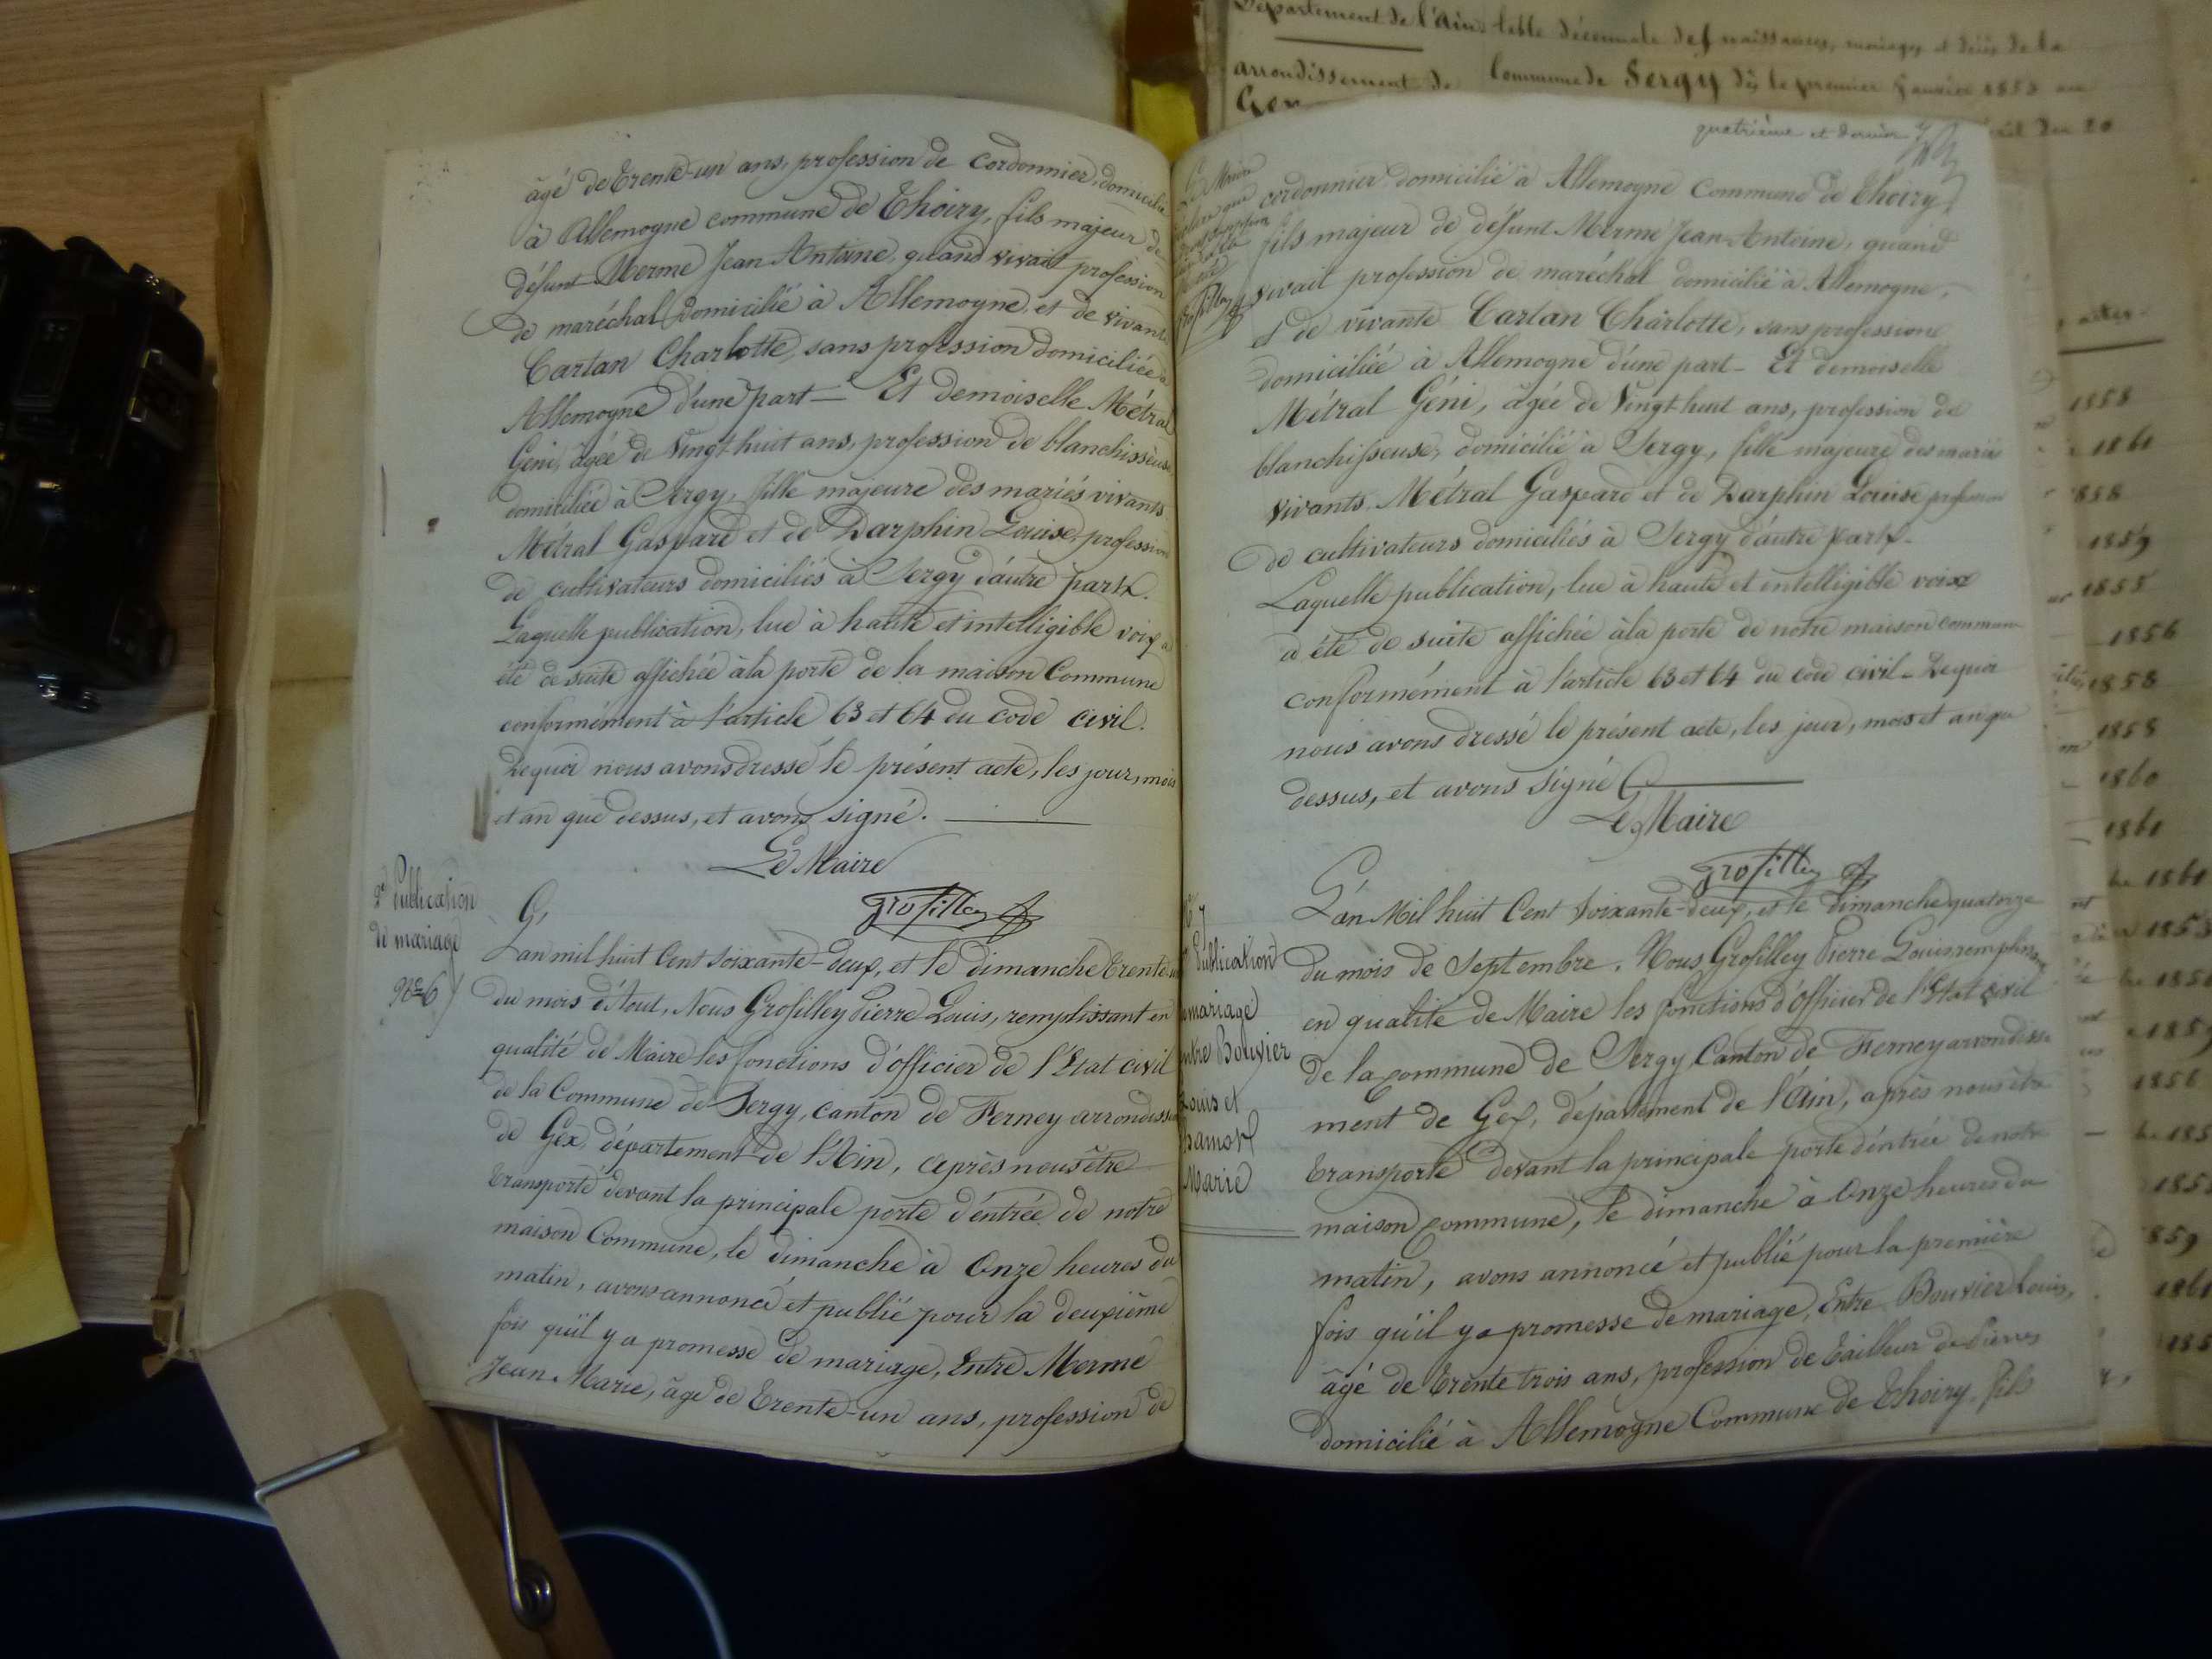 âgé de trente-un ans, profession de cordonnier, domicilié
à Allemogne commune de Thoiry, fils majeur de
défunt Merme Jean Antoine, quand vivait profession
de maréchal domicilié à Allemogne, et de vivante
Cartan Charlotte, sans profession domiciliée à
Allemogne d'une part — Et demoiselle Métral
Géni, âgée de Vingt huit ans, profession de blanchisseuse,
domiciliée à Sergy, fille majeure des mariés vivants
Métral Gaspard et de Darphin Louise, profession
de cultivateurs domiciliés à Sergy d'autre part.
Laquelle publication, lue à haute et intelligible voix a
été de suite affichée à la porte de la maison Commune
conformément à l'article 63 et 64 du code civil.
De quoi nous avons dressé le présent acte, les jour, mois
et an que dessus, et avons signé.
Le Maire
Grosfilley
2e Publication
de mariage
No 6
L'an mil huit Cent soixante-deux, et le dimanche trente-un
du mois d'Aout, Nous Grosfilley Pierre Louis, remplissant en
qualité de Maire les fonctions d'officier de l'Etat civil
de la Commune de Sergy, canton de Ferney arrondissem
de Gex, département de l'Ain, après nous être
transporté devant la principale porte d'éntrée de notre
maison Commune, le dimanche à Onze heures du
matin, avons annoncé et publié pour la deuxième
fois qu'il y a promesse de mariage, Entre Merme
Jean-Marie, âgé de trente-un ans, profession de
quatrième et dernier
Le Maire
cordonnier domicilié à Allemogne commune de Thoiry,
fils majeur de défunt Merme Jean-Antoine, quand
vivait profession de maréchal domicilié à Allemogne,
et de vivante Cartan Charlotte, sans profession
domiciliée à Allemogne d'une part - Et demoiselle
Métral Géni, âgée de Vingt huit ans, profession de
blanchisseuse, domicilié à Sergy, fille majeure des mariés
vivants Métral Gaspard et de Darphin Louise profession
de cultivateurs domiciliés à Sergy d'autre part.
Laquelle publication, lue à haute et intelligible voix
a été de suite affichée à la porte de notre maison commune
conformément à l'article 63 et 64 du code civil - De quoi
nous avons dressé le présent acte, les jour, mois et an que
dessus, et avons signé
Le Maire
Grosfilley
No 7
Publication
mariage
entre Bouvier
Louis et
Marie
L'an Mil huit Cent soixante-deux, et le dimanche quatorze
du mois de Septembre. Nous Grosfilley Pierre Louis remplissant
en qualité de Maire les fonctions d'Officier de l'Etat civil
de la commune de Sergy Canton de Ferney arrondisse
ment de Gex, département de l'Ain, après nous être
transporté devant la principale porte d'éntrée de notre
maison commune, le dimanche à Onze heures du
matin, avons annoncé et publié pour la première
fois qu'il y a promesse de mariage, Entre Bouvier Louis,
âgé de trente trois ans, profession de tailleur de pierres
domicilié à Allemogne Commune de Thoiry, fils
Département de l'Ain table décennale des naissances, mariages et décès de la
arrondissement de Commune de Sergy dès le premier Janvier 1853 au
Gex
1858
1861
1858
1859
1855
1856
1858
1858
1860
1861
1861
1853
1859
1856
1861